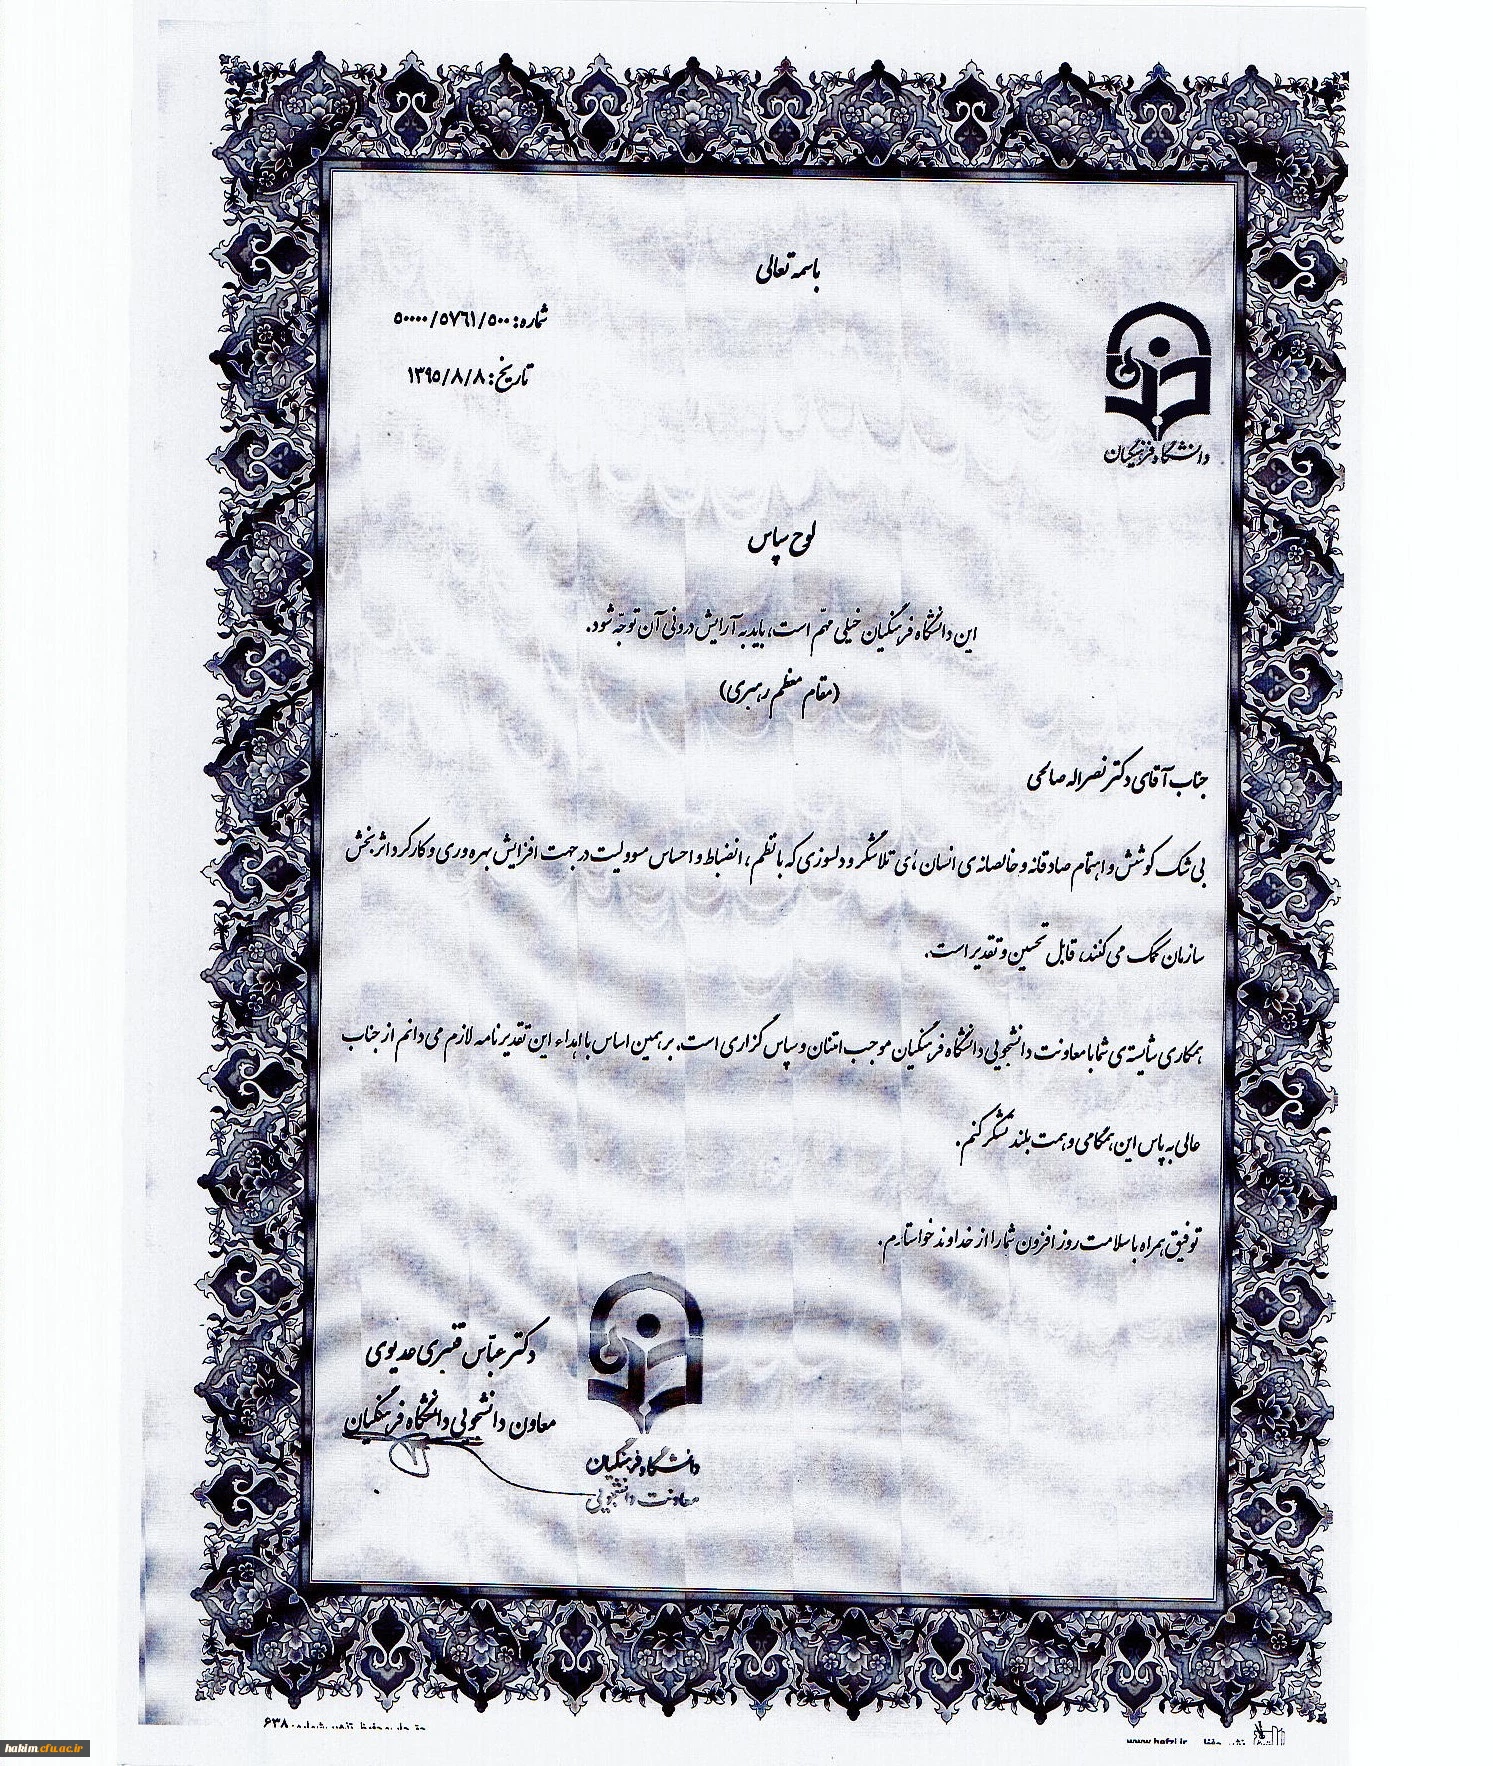 باسمه تعالی
شماره: ۵۰۰۰۰/۵۷۶۱/۵۰۰
تاریخ: ۱۳۹۵/۸/۸
دانشگاه فرهنگیان
لوح سپاس
این دانشگاه فرهنگیان خیلی مهّم است، باید به آرایش درونی آن توجّه شود.
(مقام معظم رهبری)
جناب آقای دکتر نصراله صالحی
بی شک کوشش و اهتمام صادقانه و خالصانه ی انسان های تلاشگر و دلسوزی که با نظم، انضباط و احساس مسوولیت در جهت افزایش بهره وری و کارکرد اثربخش
سازمان کمک می کنند، قابل تحسین و تقدیر است.
همکاری شایسته ی شما با معاونت دانشجویی دانشگاه فرهنگیان موجب امتنان و سپاس گزاری است. بر همین اساس با اهداء این تقدیرنامه لازم می دانم از جناب
عالی به پاس این همگامی و همت بلند تشکر کنم.
توفیق همراه با سلامت روز افزون شما را از خداوند خواستارم.
دکتر عبّاس قنبری عدیوی
معاون دانشجویی دانشگاه فرهنگیان
دانشگاه فرهنگیان
معاونت دانشجویی
۶۳۸
www.hafzi.ir
hakim.cfu.ac.ir